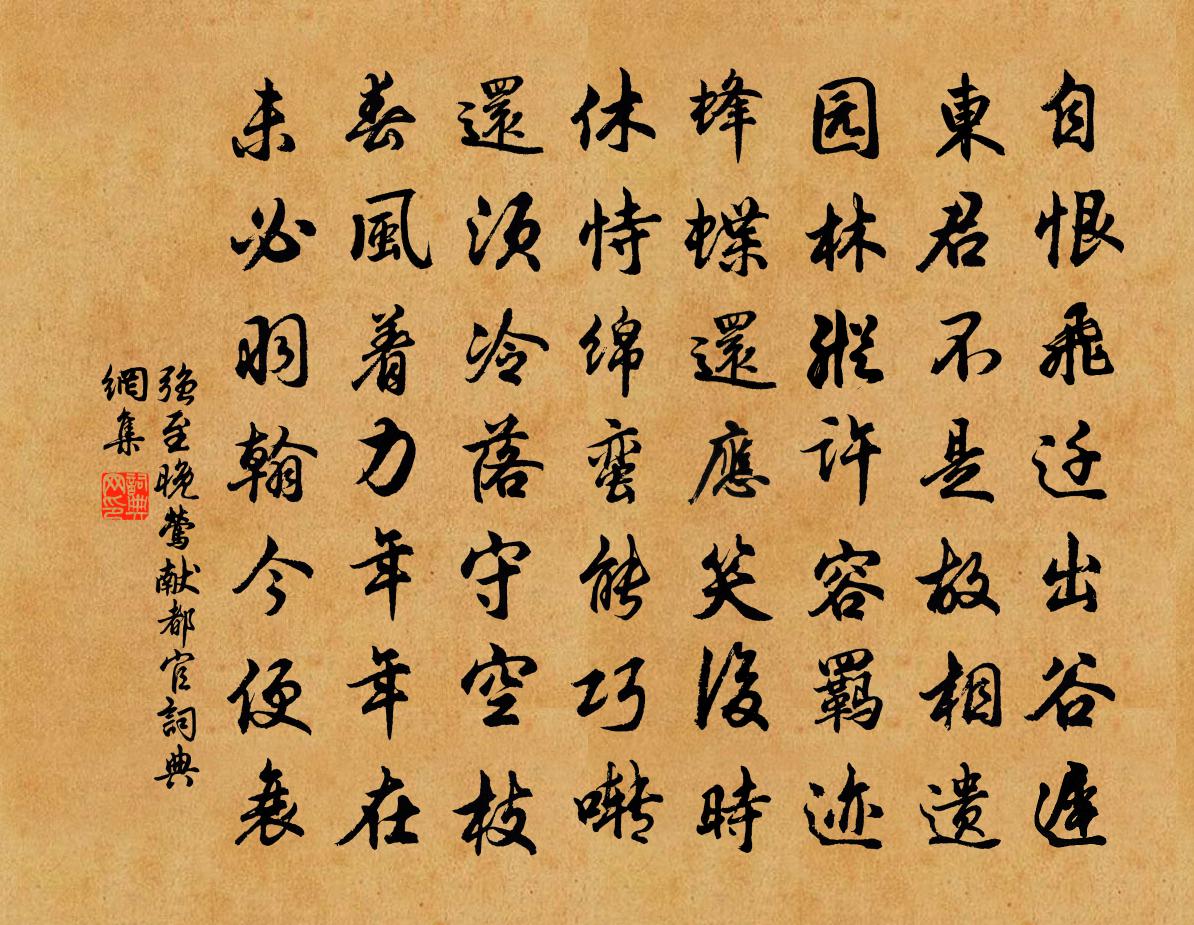 自恨飛迁出谷遲
東君不是故相遗
园林縱许容羁迹
蜂蝶還應笑後時
休恃綿蛮能巧囀
還须冷落守空枝
春風着力年年在
未必羽翰今便衰
強至晚莺献都官詞典
網集
詞典网印